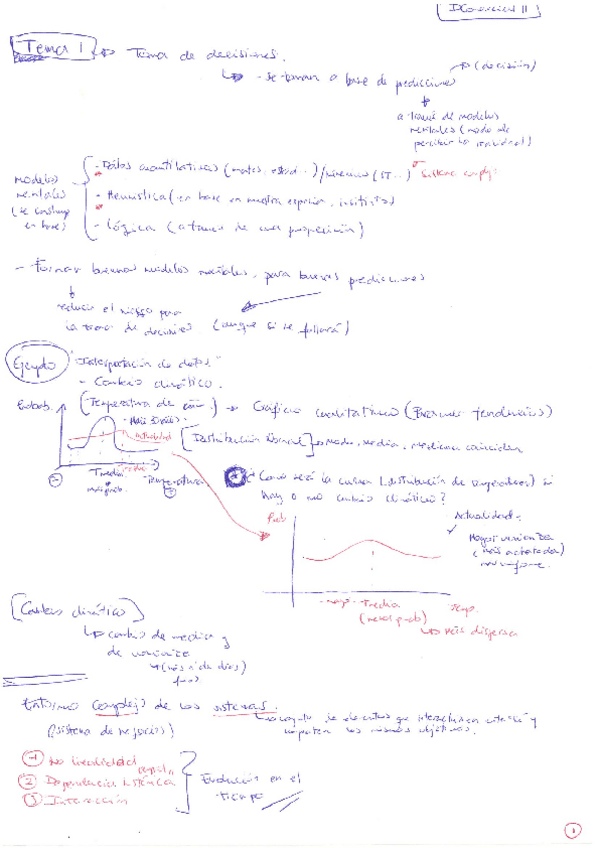 Tema 1 → Tema de decisiones.
↳ - se toman a base de predicciones → (decisión)
a través de modelos
mentales (modo de
percibir la realidad)
modelos
mentales
(se construye
en base)
- Datos cuantitativos (mates, estad...) / (ST..)
- Heurística (en base en nuestra experiencia, instintos)
- Lógica (a traves de una proposición)
- Formar buenos modelos mentales, para buenas predicciones
reducir el riesgo para
la toma de decisiones (aunque si se fallará)
Ejemplo "Interpretación de datos"
- Cambio climático.
Probab. [Temperatura de] → Gráfico cualitativo (Presumir tendencias)
Actualidad
[Distribución Normal] → Moda, media, mediana coinciden
Tmedia
Temperatura
Como será la curva (distribución de temperaturas) si
hay o no cambio climático?
Prob
Actualidad.
Mayor varianza
(más achatada)
Tmedia
(menos prob)
Temp.
↳ Más dispersa
[Cambio climático]
↳ cambio de media y
de varianza
Entorno complejo de los sistemas.
↳ conjunto de elementos que interactuan entre sí y
comparten los mismos objetivos.
(sistema de negocios)
1 No linealidad
2 Dependencia histórica
3 Interacción
Evolución en el
tiempo
1